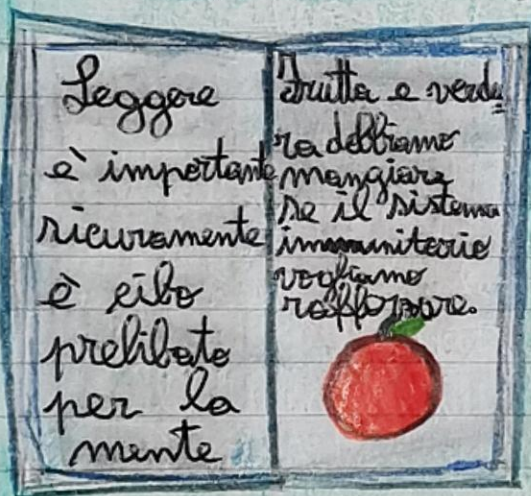 Leggere
è importante
sicuramente
è cibo
prelibato
per la
mente
Frutta e verdu
ra dobbiamo
mangiare
se il sistema
immunitario
vogliamo
rafforzare.